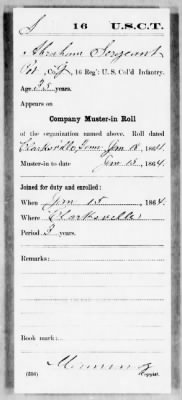 S 16 U.S.C.T.
Abraham Sergeant
Pvt, Co. 16 Reg't U. S. Col'd Infantry.
Age 25 years.
Appears on
Company Muster-in Roll
of the organization named above. Roll dated
Clarksville, Tenn, Jan 18, 1864.
Muster-in to date Jan 18, 1864.
Joined for duty and enrolled:
When Jan 15, 1864.
Where Clarksville
Period 3 years.
Remarks:
Book mark:
(356) Copyist.